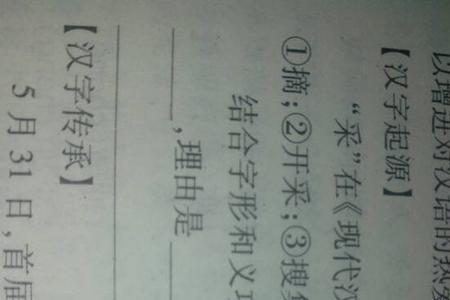 以增进对汉语的热爱
【汉字起源】
“采”在《现代汉
①摘;②开采;③搜集
结合字形和义项
______,理由是______
【汉字传承】
5月31日,首届